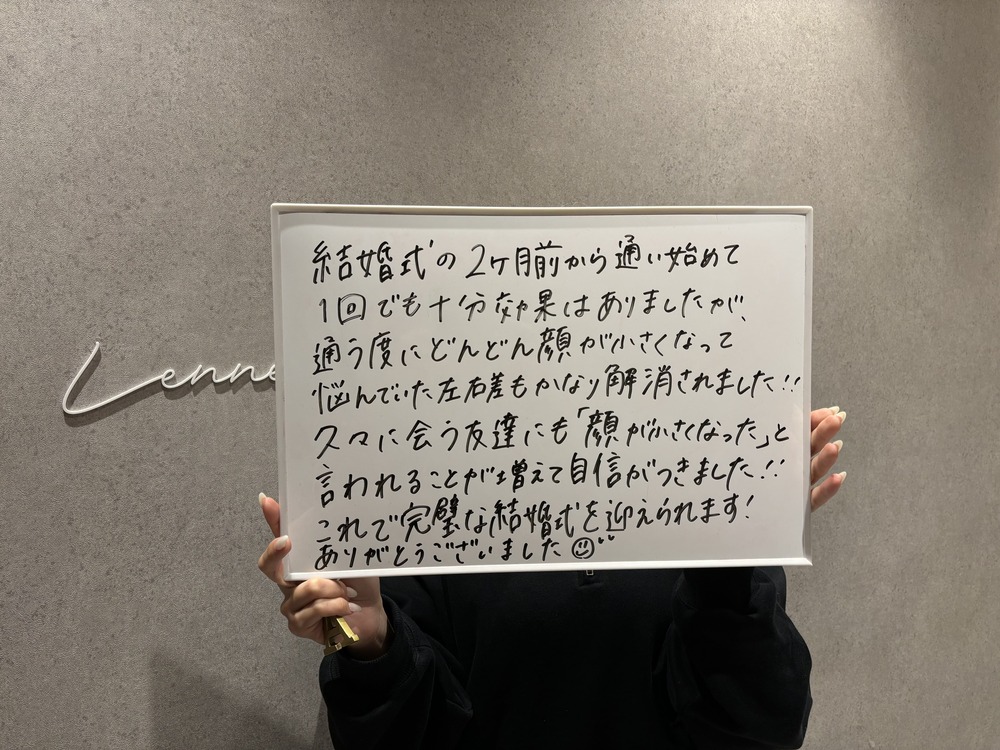 結婚式の2ヶ月前から通い始めて
1回でも十分効果はありましたが、
通う度にどんどん顔が小さくなって
悩んでいた左右差もかなり解消されました!!
久々に会う友達にも「顔が小さくなった」と
言われることが増えて自信がつきました!!
これで完璧な結婚式を迎えられます!
ありがとうございました☺
Lenne